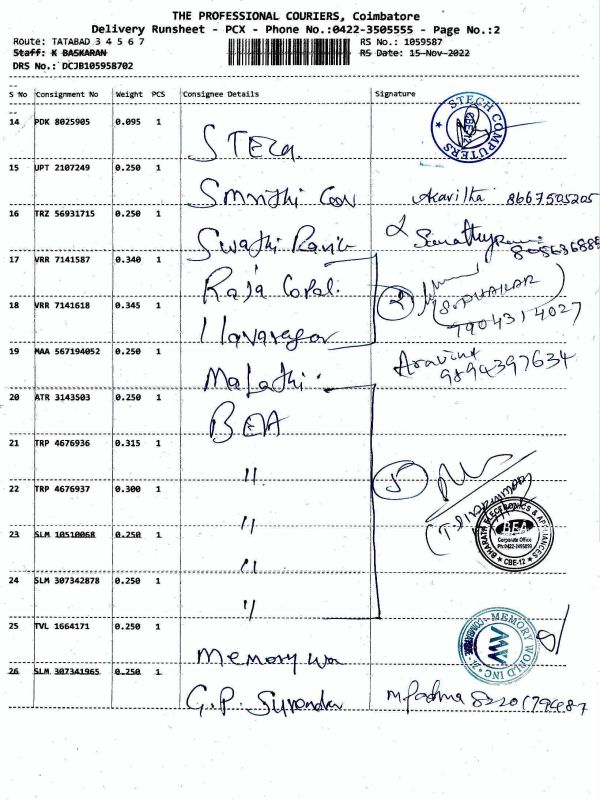 THE PROFESSIONAL COURIERS, Coimbatore
Delivery Runsheet - PCX - Phone No.:0422-3505555 - Page No.:2
Route: TATABAD 3 4 5 6 7 RS No.: 1059587
Staff: K BASKARAN RS Date: 15-Nov-2022
DRS No.: DCJB105958702
S No Consignment No Weight PCS Consignee Details Signature
14 PDK 8025905 0.095 1 STECH COMPUTERS CBE-12
15 UPT 2107249 0.250 1 8667505205
16 TRZ 56931715 0.250 1 Swathi
17 VRR 7141587 0.340 1 Raja Gopal 2
18 VRR 7141618 0.345 1 Ilavarasan 7904314027
19 MAA 567194052 0.250 1 Malathi Aravind 9894397634
20 ATR 3143503 0.250 1 BEA
21 TRP 4676936 0.315 1 "
22 TRP 4676937 0.300 1 " 5
23 SLM 10510068 0.250 1 " BHARATH ELECTRONICS & APPLIANCES BEA Corporate Office CBE-12
24 SLM 307342878 0.250 1 "
25 TVL 1664171 0.250 1 Memory MEMORY WORLD INC
26 SLM 307341965 0.250 1 G.P. Surendar M Padma